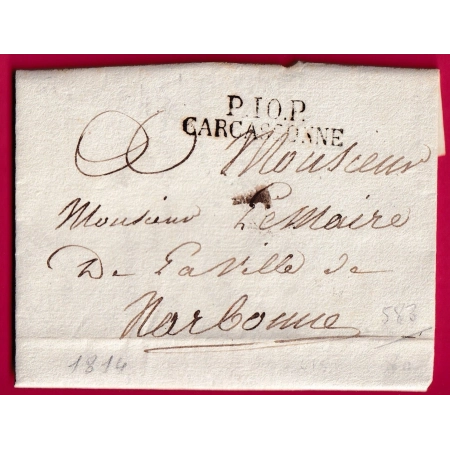 P.10.P.
CARCASSONNE
Monsieur
Monsieur Le Maire
De La Ville de
Narbonne
583
1814